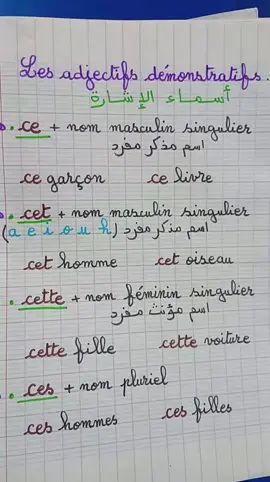 Les adjectifs démonstratifs.
أسماء الإشارة
. ce + nom masculin singulier
اسم مذكر مفرد
ce garçon ce livre
. cet + nom masculin singulier
(a e i o u h) اسم مذكر مفرد
cet homme cet oiseau
. cette + nom féminin singulier
اسم مؤنث مفرد
cette fille cette voiture
. ces + nom pluriel
ces hommes ces filles